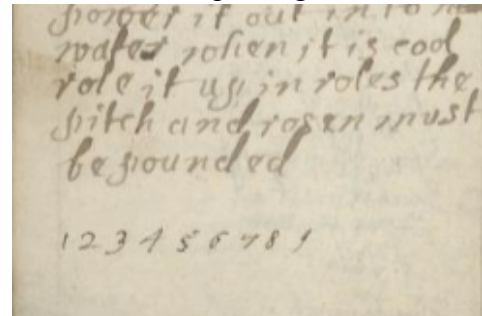 power it out in to
water when it is cool
role it up in roles the
pitch and rosen must
be pounded
1 2 3 4 5 6 7 8 9